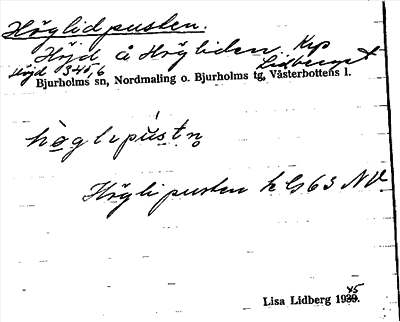 Höglidpusten.
Höjd å Högliden. Krp
Höjd 345,6 Lidberget
Bjurholms sn, Nordmaling o. Bjurholms tg, Västerbottens l.
höglipustn̥
Höglipusten k G63 NV
Lisa Lidberg 1939. 45